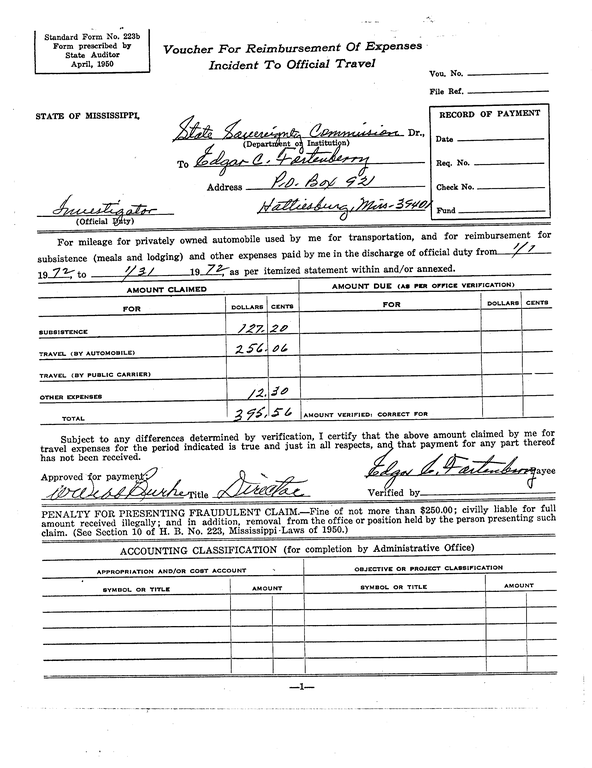 Standard Form No. 223b
Form prescribed by
State Auditor
April, 1950
Voucher For Reimbursement Of Expenses
Incident To Official Travel
Vou. No.
File Ref.
STATE OF MISSISSIPPI,
RECORD OF PAYMENT
Date
Req. No.
Check No.
Fund
State Sovereignty Commission Dr.,
(Department or Institution)
To Edgar C. Fortenberry
Address P.O. Box 921
Hattiesburg, Miss - 39401
Investigator
(Official Duty)
For mileage for privately owned automobile used by me for transportation, and for reimbursement for
subsistence (meals and lodging) and other expenses paid by me in the discharge of official duty from 1/1
1972, to 1/31 1972, as per itemized statement within and/or annexed.
AMOUNT CLAIMED AMOUNT DUE (AS PER OFFICE VERIFICATION)
FOR DOLLARS CENTS FOR DOLLARS CENTS
SUBSISTENCE 127.20
TRAVEL (BY AUTOMOBILE) 256.06
TRAVEL (BY PUBLIC CARRIER)
OTHER EXPENSES 12.30
TOTAL 395.56 AMOUNT VERIFIED: CORRECT FOR
Subject to any differences determined by verification, I certify that the above amount claimed by me for
travel expenses for the period indicated is true and just in all respects, and that payment for any part thereof
has not been received.
Edgar C. Fortenberry Payee
Approved for payment:
Webb Burke Title Director Verified by
PENALTY FOR PRESENTING FRAUDULENT CLAIM.—Fine of not more than $250.00; civilly liable for full
amount received illegally; and in addition, removal from the office or position held by the person presenting such
claim. (See Section 10 of H. B. No. 223, Mississippi Laws of 1950.)
ACCOUNTING CLASSIFICATION (for completion by Administrative Office)
APPROPRIATION AND/OR COST ACCOUNT OBJECTIVE OR PROJECT CLASSIFICATION
SYMBOL OR TITLE AMOUNT SYMBOL OR TITLE AMOUNT
—1—